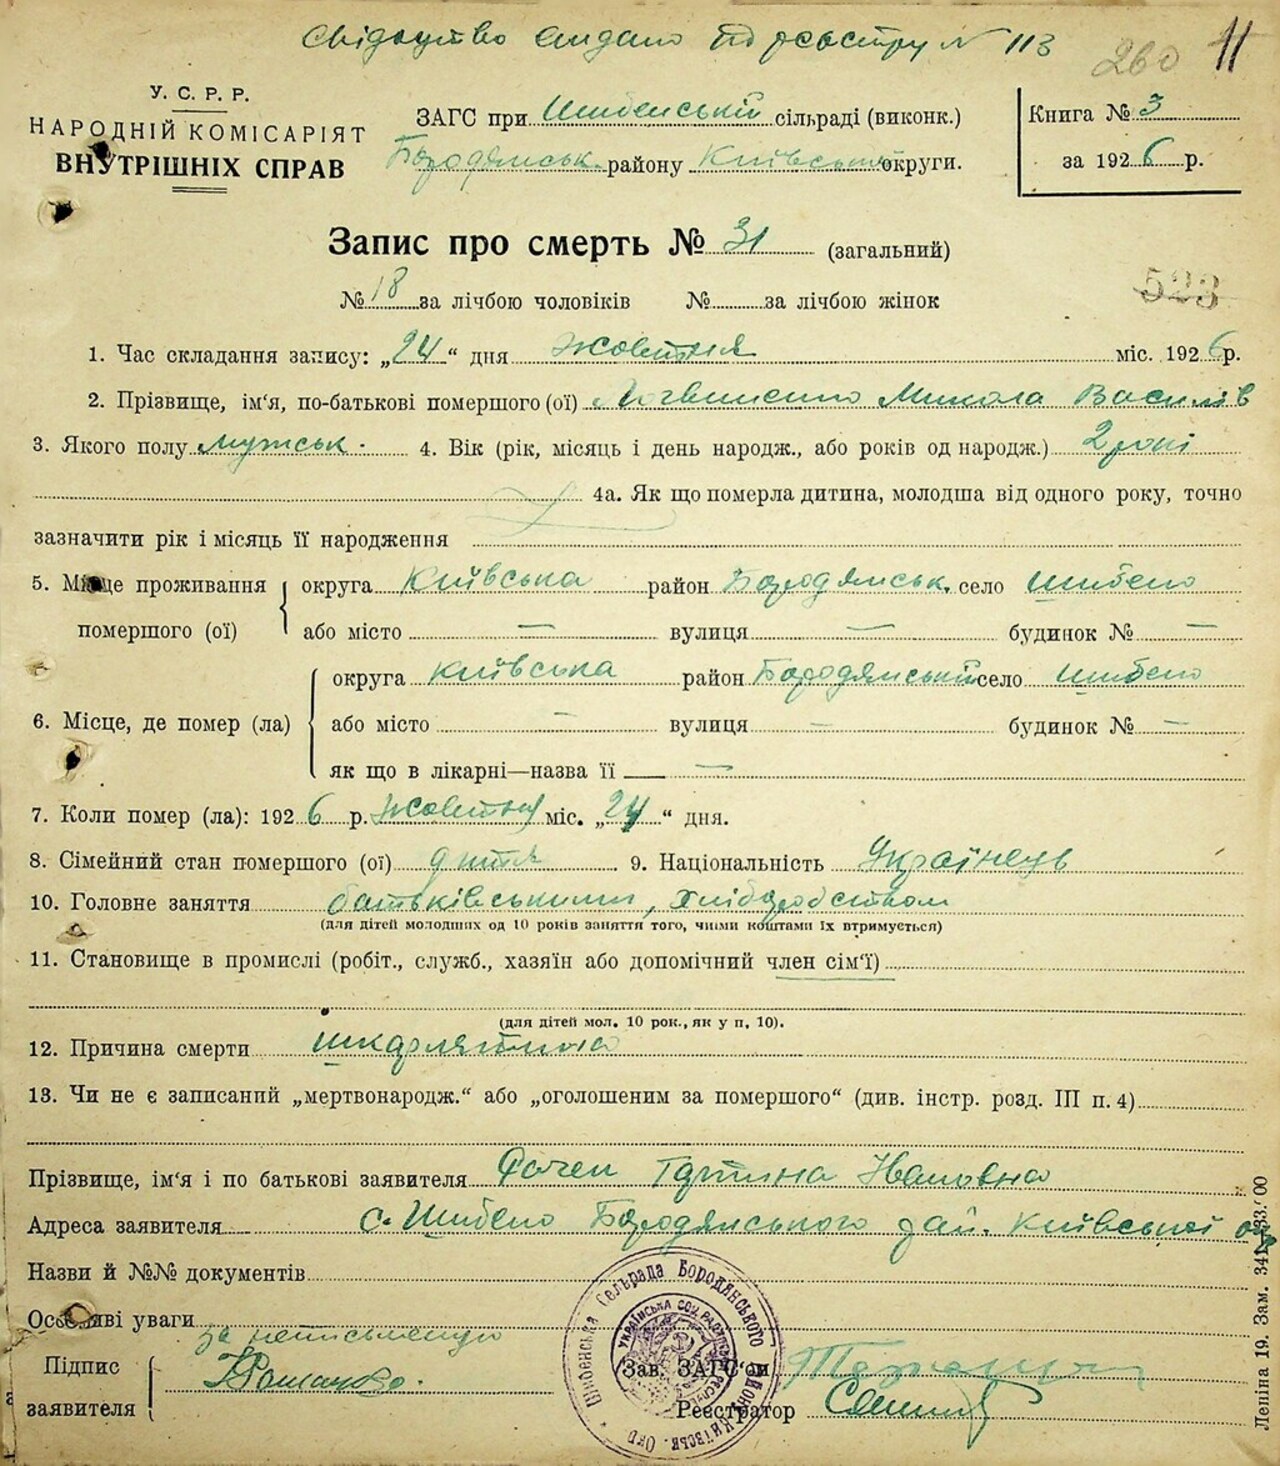 Свідоцтво видано по реєстру № 113
260 11
У. С. Р. Р.
НАРОДНІЙ КОМІСАРІЯТ
ВНУТРІШНІХ СПРАВ
ЗАГС при Шибенській сільраді (виконк.)
Бородянськ. району Київської округи.
Книга № 3
за 1926 р.
Запис про смерть № 31 (загальний)
№ 18 за лічбою чоловіків №........за лічбою жінок
523
1. Час складання запису: „24“ дня жовтня міс. 1926 р.
2. Прізвище, ім'я, по-батькові помершого (ої) Логвиненко Микола Василів
3. Якого полу мужськ. 4. Вік (рік, місяць і день народж., або років од народж.) 2 роки
4а. Як що померла дитина, молодша від одного року, точно
зазначити рік і місяць її народження
5. Місце проживання помершого (ої) округа Київська район Бородянськ. село Шибено
або місто — вулиця — будинок № —
6. Місце, де помер (ла) округа Київська район Бородянський село Шибено
або місто — вулиця — будинок № —
як що в лікарні—назва її —
7. Коли помер (ла): 1926 р. Жовтня міс. „24“ дня.
8. Сімейний стан помершого (ої) дитя 9. Національність Українець
10. Головне заняття батьківськими, хліборобством
(для дітей молодших од 10 років заняття того, чиїми коштами їх втримується)
11. Становище в промислі (робіт., служб., хазяїн або допомічний член сім'ї)
(для дітей мол. 10 рок., як у п. 10).
12. Причина смерти шкарлятина
13. Чи не є записаний „мертвонародж.“ або „оголошеним за помершого“ (див. інстр. розд. III п. 4)
Прізвище, ім'я і по батькові заявителя Гартина Ивановна
Адреса заявителя с. Шибено Бородянського рай. Київської окр
Назви й №№ документів
Особливі уваги
за неписьменну
Підпис заявителя
Зав. ЗАГС'ом
Реєстратор
Шибенська Сельрада Бородянського Району Київськ. Окр.
УКРАЇНСЬКА СОЦ. РАДЯНСЬ
Леніна 19. Зам. 341